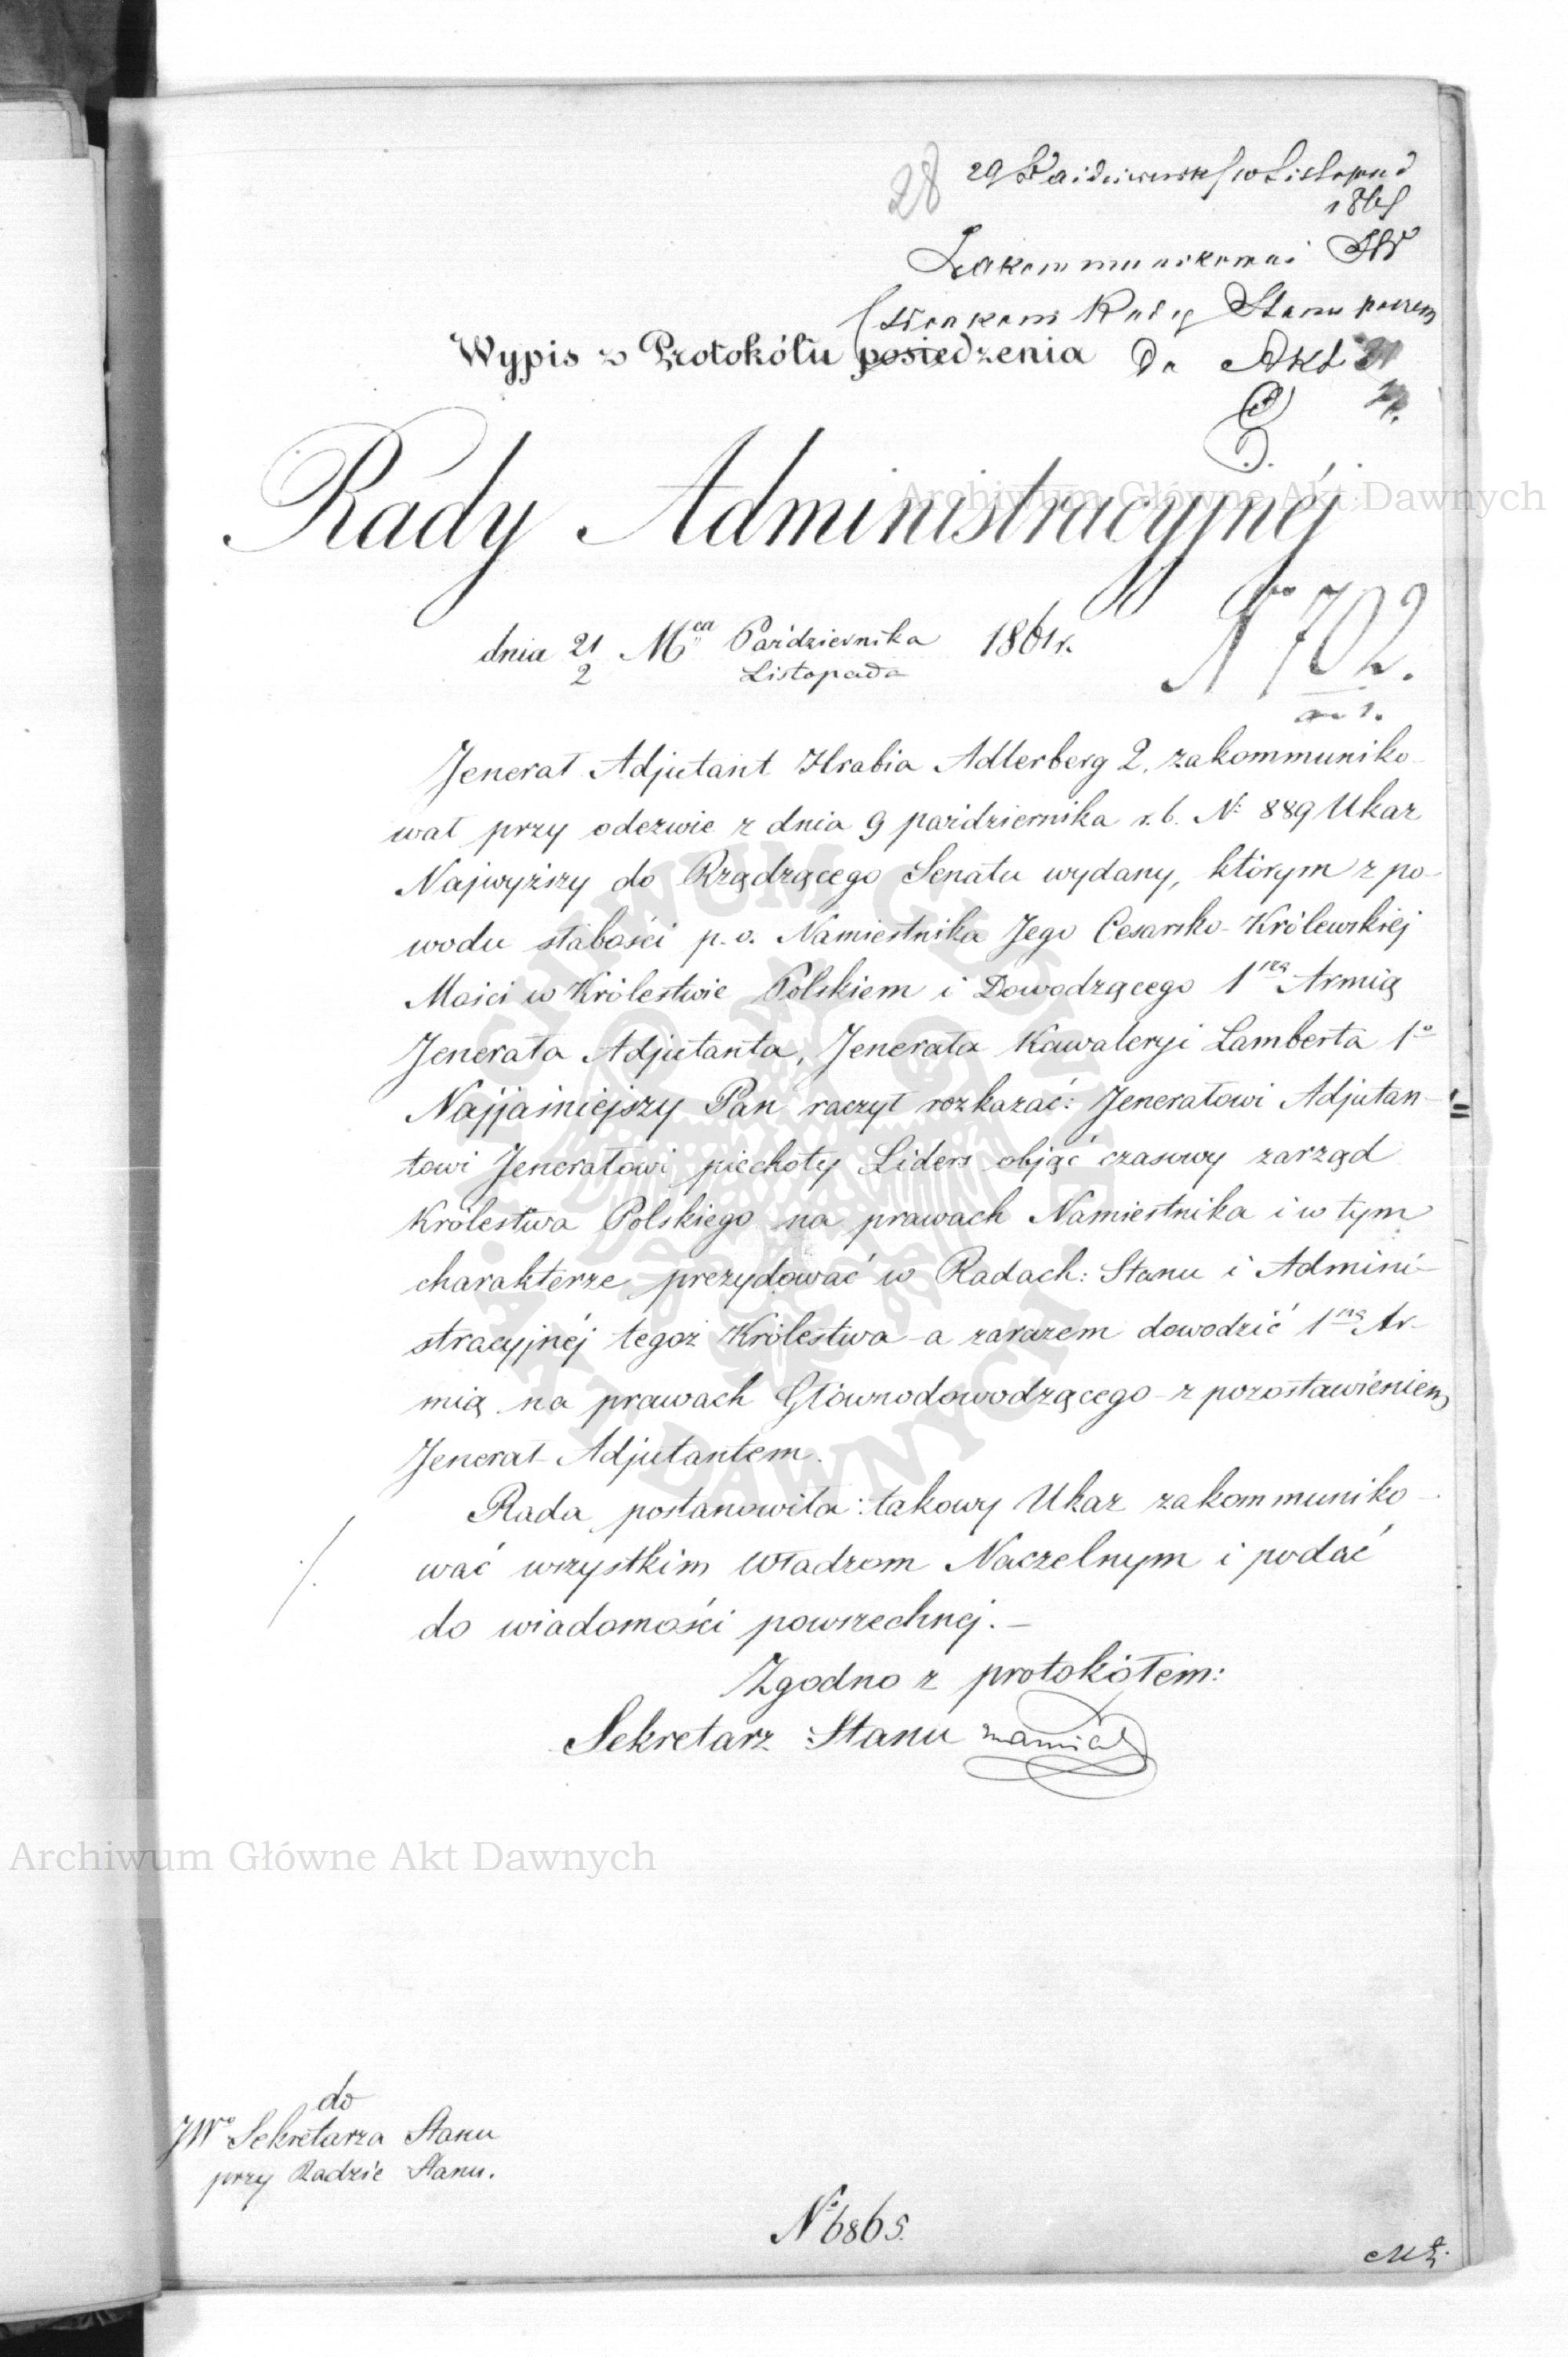 28
29 Października/10 Listopad
1861
Zakommunikować JW
Członkom Rady Stanu poczem
Wypis z Protokółu posiedzenia
Do Akt
Rady Administracyjnéj
Archiwum Główne Akt Dawnych
dnia 21/2 Mca Października/Listopada 1861 r.
No 702.
Jenerał Adjutant Hrabia Adlerberg 2. zakommuniko-
wał przy odezwie z dnia 9 października r. b. No 889 Ukaz
Najwyższy do Rządzącego Senatu wydany, którym z po-
wodu słabości p. o. Namiestnika Jego Cesarsko-Królewskiej
Mości w Królestwie Polskiem i Dowodzącego 1szą Armią
Jenerała Adjutanta, Jenerała Kawaleryi Lamberta 1o
Najjaśniejszy Pan raczył rozkazać: Jenerałowi Adjutan-
towi Jenerałowi piechoty Liders objąć czasowy zarząd
Królestwa Polskiego na prawach Namiestnika i w tym
charakterze prezydować w Radach: Stanu i Admini-
stracyjnéj tegoż Królestwa a zarazem dowodzić 1szą Ar-
mią na prawach Głównodowodzącego z pozostawieniem
Jenerał-Adjutantem.
Rada postanowiła: takowy Ukaz zakommuniko-
wać wszystkim Władzom Naczelnym i podać
do wiadomości powszechnej.-
Zgodno z protokółem:
Sekretarz Stanu
Archiwum Główne Akt Dawnych
do
JWo Sekretarza Stanu
przy Radzie Stanu.
No 6865.
ARCHIWUM GŁÓWNE AKT DAWNYCH